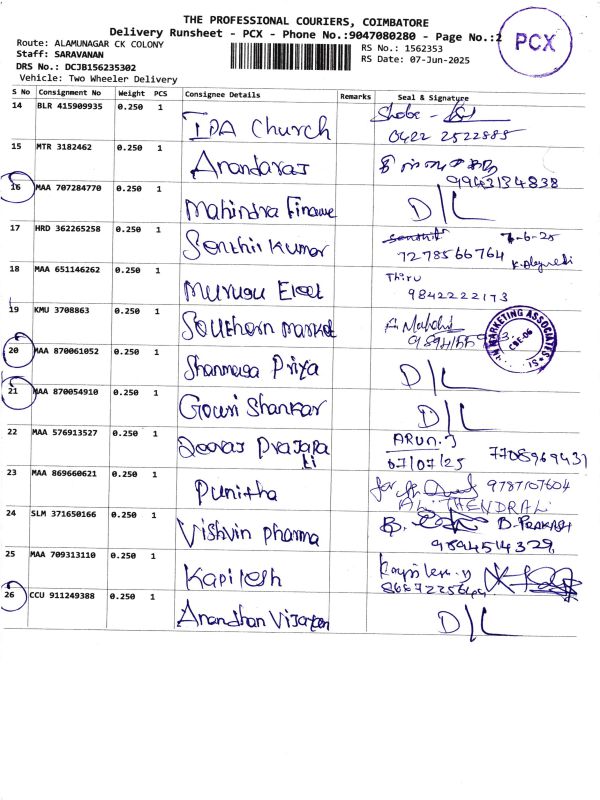 THE PROFESSIONAL COURIERS, COIMBATORE
Delivery Runsheet - PCX - Phone No.:9047080280 - Page No.:2
PCX
Route: ALAMUNAGAR CK COLONY
RS No.: 1562353
Staff: SARAVANAN
RS Date: 07-Jun-2025
DRS No.: DCJB156235302
Vehicle: Two Wheeler Delivery
S No Consignment No Weight PCS Consignee Details Remarks Seal & Signature
14 BLR 415909935 0.250 1
IPA Church
0422 2522885
15 MTR 3182462 0.250 1
Anandaraj
9943134838
16 MAA 707284770 0.250 1
Mahindra Finance
D/L
17 HRD 362265258 0.250 1
Senthil Kumar
7-6-25
7278566764
18 MAA 651146262 0.250 1
Murugu Elect
Thiru
9842222173
19 KMU 3708863 0.250 1
Southern market
MARKETING ASSOCIATES
CBE-06
20 MAA 870061052 0.250 1
Shanmuga Priya
D/L
21 MAA 870054910 0.250 1
Gowri Shankar
D/L
22 MAA 576913527 0.250 1
ARUN.J
07/07/25 7708969431
23 MAA 869660621 0.250 1
Punitha
for
9787107604
24 SLM 371650166 0.250 1
Vishvin pharma
B. PRAKASH
9894514329
25 MAA 709313110 0.250 1
Kapilesh
26 CCU 911249388 0.250 1
Anandhan
D/L